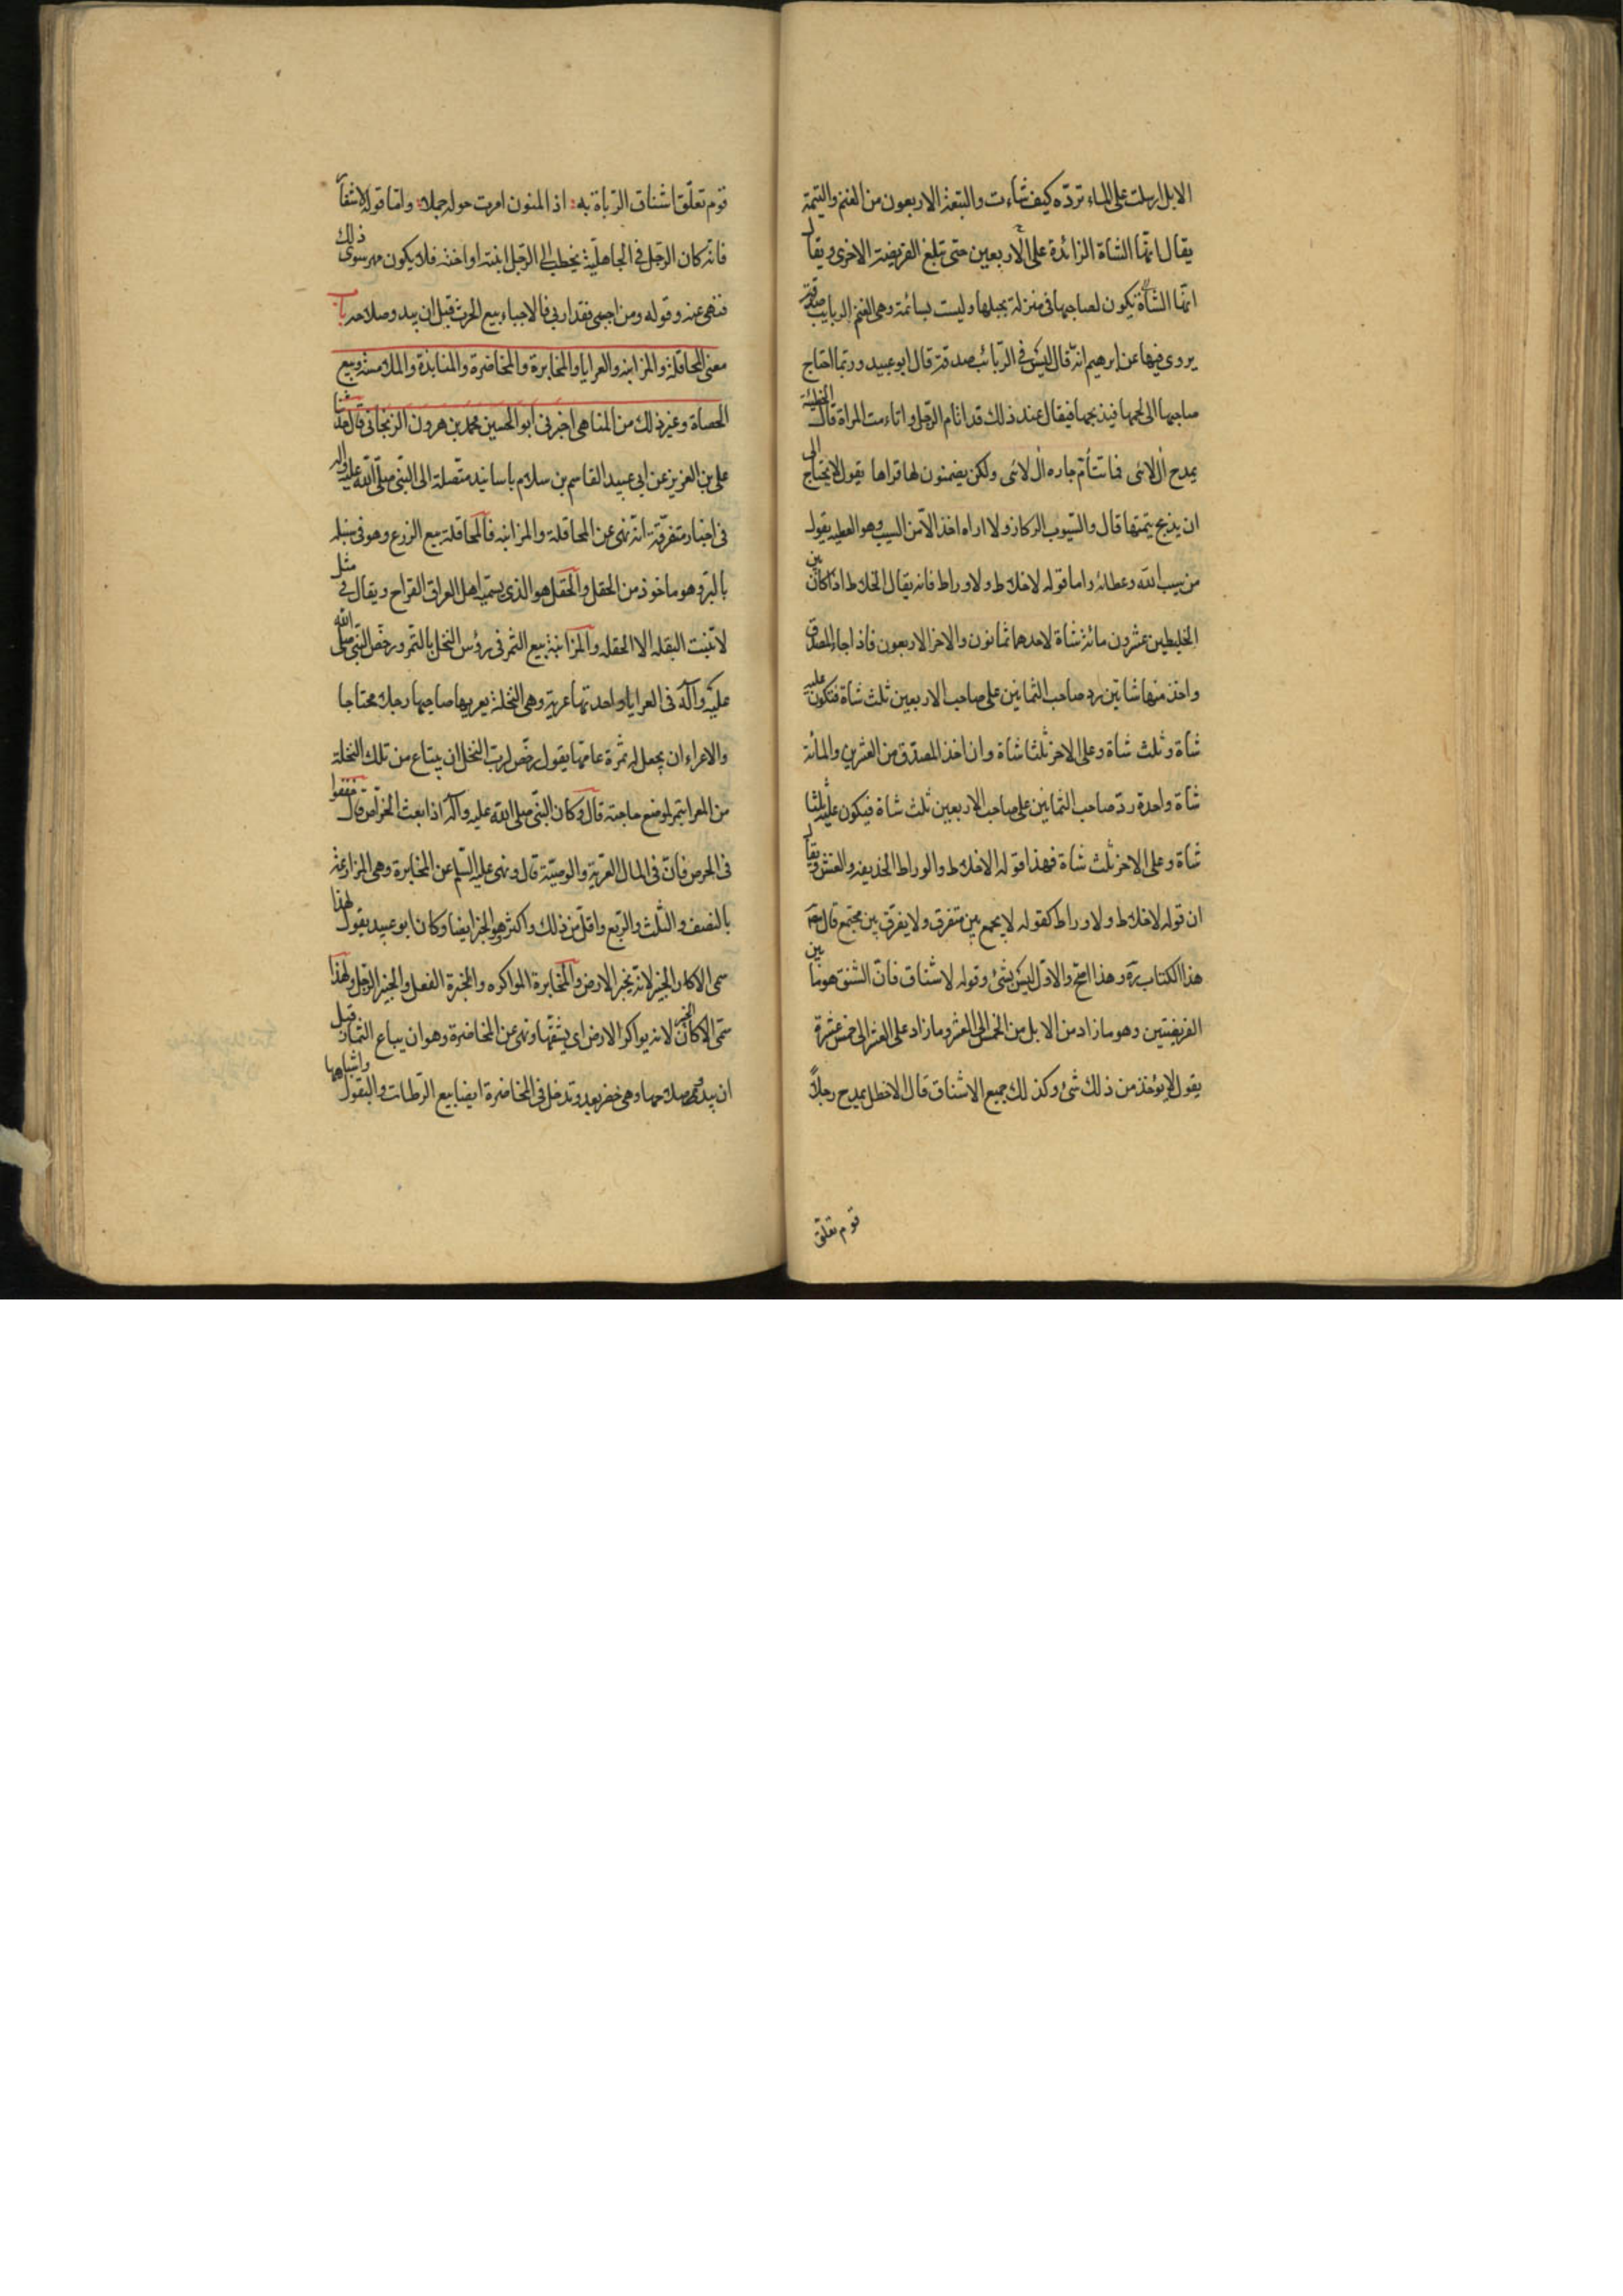 الابل ارسلت على الماء ترده كيف شاءت والتيعة الاربعون من الغنم والتيمة
يقال انها الشاة الزائدة على الاربعين حتى تبلغ الفريضة الاخرى ويقال
انها الشاة تكون لصاحبها فى منزله يحلبها وليست بسائمة وهى الغنم الربايب
يروى فيها عن ابرهيم انه قال ليس فى الربائب صدقة قال ابو عبيد وربما احتاج
صاحبها الى لحمها فيذبحها فيقال عند ذلك قد اتام الرجل واتاءمت المراة قال الحطيئة
يمدح آل لائى فما تتأم جاره آل لائى ولكن يضمنون لها قراها يقول لا يحتاج الى
ان يذبح يتمتها قال والسيوب الركاز ولا اراه اخذ الا من السيب وهو العطيه يقول
من سيب الله وعطائه واما قوله لا خلاط ولا وراط فانه يقال الخلاط اذا كان بين
الخليطين عشرون ومائة شاة لاحدهما ثمانون والاخر الاربعون فاذا جاء المصدق
واخذ منها شاتين رد صاحب الثمانين على صاحب الاربعين ثلث شاة فتكون عليه
شاة وثلث شاة وعلى الاخر ثلثا شاة وان اخذ المصدق من العشرين والمائة
شاة واحدة رد صاحب الثمانين على صاحب الاربعين ثلث شاة فيكون عليه ثلثا
شاة وعلى الاخر ثلث شاة فهذا قوله لا خلاط والوراط الخديعة والغش ويقال
ان قوله لا خلاط ولا وراط كقوله لا يجمع بين متفرق ولا يفرق بين مجتمع قال
هذا الكتاب ره وهذا اصح والاول ليس بشئ وقوله لا شناق فان الشنق هو ما بين
الفريضتين وهو ما زاد من الابل من الخمس الى العشر وما زاد على العشر الى خمس عشرة
يقول لا يؤخذ من ذلك شئ وكذلك جميع الاشناق قال الاخطل يمدح رجلاً
قوم تعلق
قوم تعلق اشناق الديات به اذا المئون امرت حوله حملا واما قوله لا شغار
فانه كان الرجل فى الجاهلية يخطب الى الرجل ابنته او اخته فلا يكون مهر سوى ذلك
فنهى عنه وقوله ومن اجبى فقد اربى فالاجباء بيع الحرث قبل ان يبدو صلاحه باب
معنى المحاقلة والمزابنه والعرايا والمخابرة والمخاضرة والمنابذة والملامسة وبيع
الحصاة وغير ذلك من المناهى اخبرنى ابو الحسين محمد بن هرون الزنجانى قال حدثنا
على بن العزيز عن ابى عبيد القاسم بن سلام باسانيد متصلة الى النبى صلى الله عليه واله
فى اخبار متفرقة انه نهى عن المحاقلة والمزابنه فالمحاقلة بيع الزرع وهو فى سنبله
بالبر وهو ماخوذ من الحقل والحقل هو الذى يسميه اهل العراق القراح ويقال فى مثل
لا تنبت البقله الا الحقله والمزابنة بيع الثمر فى رؤس النخل بالتمر ورخص النبى صلى الله
عليه وآله فى العرايا واحدتها عرية وهى النخلة يعريها صاحبها رجلا محتاجا
والاعراء ان يجعل له ثمرة عامها يقول رخص لرب النخل ان يبتاع من تلك النخلة
من المعرا بتمر لموضع حاجته قال وكان النبى صلى الله عليه وآله اذا بعث الخراص قال خففوا
فى الخرص فان فى المال العرية والوصية قال ونهى عليه السلم عن المخابرة وهى المزارعة
بالنصف والثلث والربع واقل من ذلك واكثر وهو الخبر ايضا وكان ابو عبيد يقول لهذا
سمى الاكار الخبير لانه يخبر الارض والمخابرة المواكره والخبرة الفعل والخبير الرجل ولهذا
سمى الاكار لانه يواكر الارض اى يشقها ونهى عن المخاضرة وهو ان يباع الثمار قبل
ان يبدو صلاحها وهى خضر بعد وتدخل فى المخاضرة ايضا بيع الرطاب والبقول واشباهها